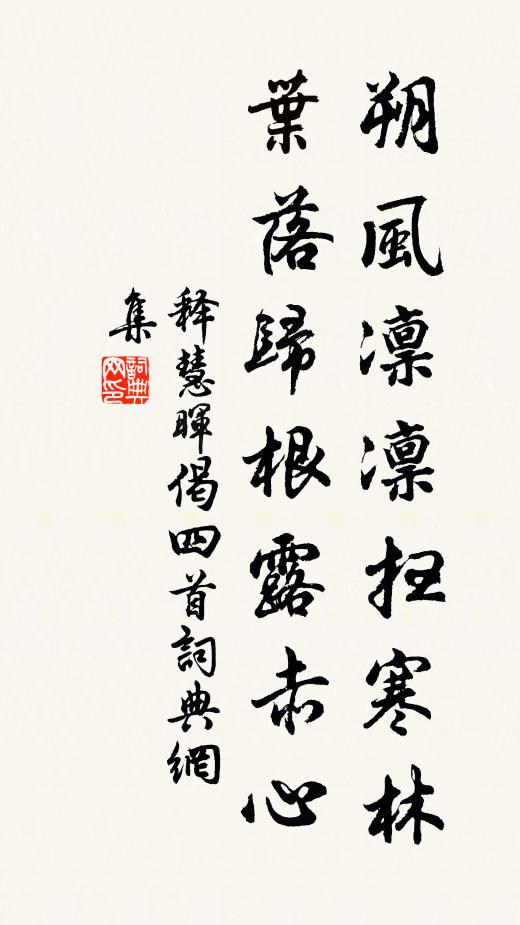 朔風凛凛扫寒林
葉落歸根露赤心
释慧暉偈四首詞典網
集
詞典网印